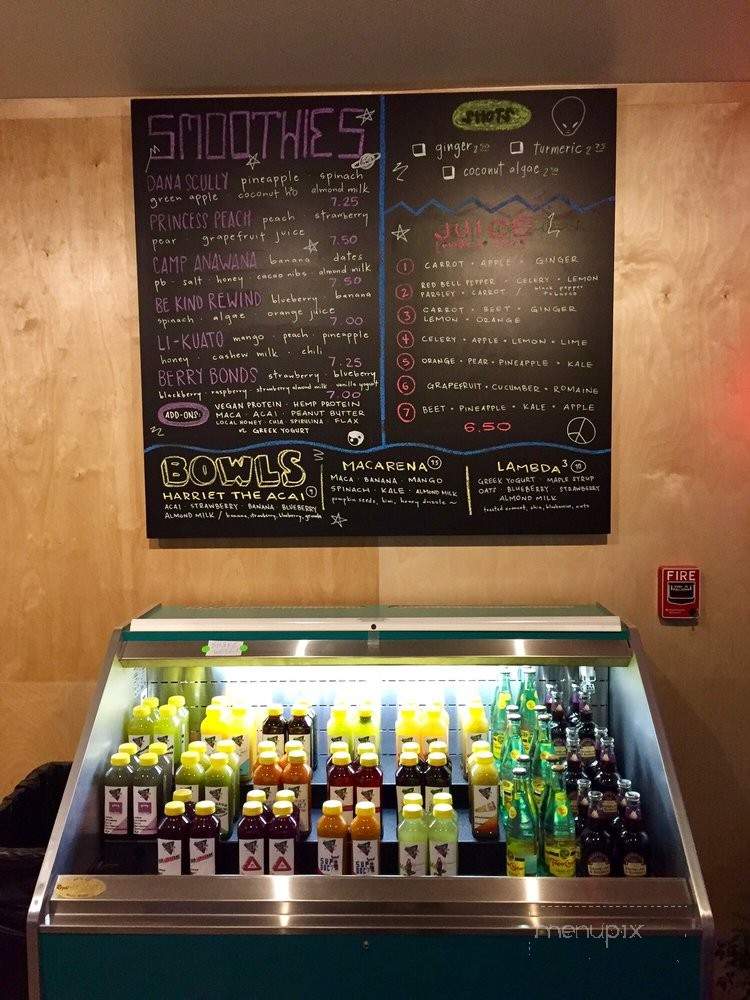 SMOOTHIES
DANA SCULLY pineapple · spinach
green apple coconut h²o almond milk
7.25
PRINCESS PEACH peach strawberry
pear grapefruit juice
7.50
CAMP ANAWANA banana dates
pb · salt · honey · cacao nibs · almond milk
7.50
BE KIND REWIND blueberry · banana
spinach · algae orange juice
7.00
LI-KUATO mango · peach · pineapple
honey · cashew milk · chili
7.25
BERRY BONDS strawberry · blueberry
blackberry · raspberry · strawberry almond milk · vanilla yogurt
7.00
ADD-ONS: VEGAN PROTEIN · HEMP PROTEIN
MACA · ACAI · PEANUT BUTTER
LOCAL HONEY · CHIA · SPIRULINA · FLAX
GREEK YOGURT
SHOTS
ginger 2.50 turmeric 2.75
coconut algae 2.50
JUICE
1 CARROT · APPLE · GINGER
2 RED BELL PEPPER · CELERY · LEMON
PARSLEY · CARROT / black pepper
tabasco
3 CARROT · BEET · GINGER
LEMON · ORANGE
4 CELERY · APPLE · LEMON · LIME
5 ORANGE · PEAR · PINEAPPLE · KALE
6 GRAPEFRUIT · CUCUMBER · ROMAINE
7 BEET · PINEAPPLE · KALE · APPLE
6.50
BOWLS
HARRIET THE ACAI 9
ACAI · STRAWBERRY · BANANA · BLUEBERRY
ALMOND MILK / banana, strawberry, blueberry, granola
MACARENA
MACA · BANANA · MANGO
SPINACH · KALE · ALMOND MILK
pumpkin seeds, kiwi, honey drizzle
LAMBDA³ 10
GREEK YOGURT · MAPLE SYRUP
OATS · BLUEBERRY · STRAWBERRY
ALMOND MILK
toasted coconut, chia, blueberries, oats
FIRE
menupix